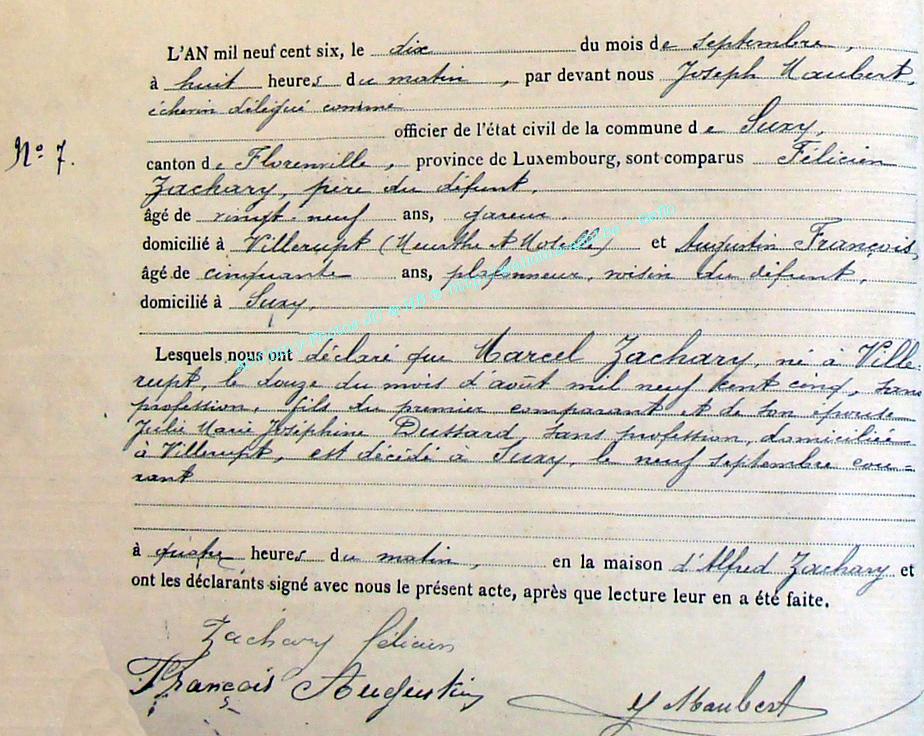 L'AN mil neuf cent six, le dix du mois de septembre,
à huit heures du matin, par devant nous Joseph Maubert,
échevin délégué comme
officier de l'état civil de la commune de Suxy,
N° 7.
canton de Florenville, province de Luxembourg, sont comparus Félicien
Zachary, père du défunt,
âgé de vingt-neuf ans, gareur.
domicilié à Villerupt (Meurthe et Moselle) et Augustin François,
âgé de cinquante ans, plafonneur, voisin du défunt,
domicilié à Suxy.
Lesquels nous ont déclaré que Marcel Zachary, né à Ville-
rupt, le douze du mois d'août mil neuf cent cinq, sans
profession, fils du premier comparant et de son épouse
Julie Marie Joséphine Dussard, sans profession, domiciliée
à Villerupt, est décédé à Suxy, le neuf septembre cou=
rant
à quatre heures du matin, en la maison d'Alfred Zachary et
ont les déclarants signé avec nous le présent acte, après que lecture leur en a été faite.
Zachary félicien
François Augustin
J Maubert